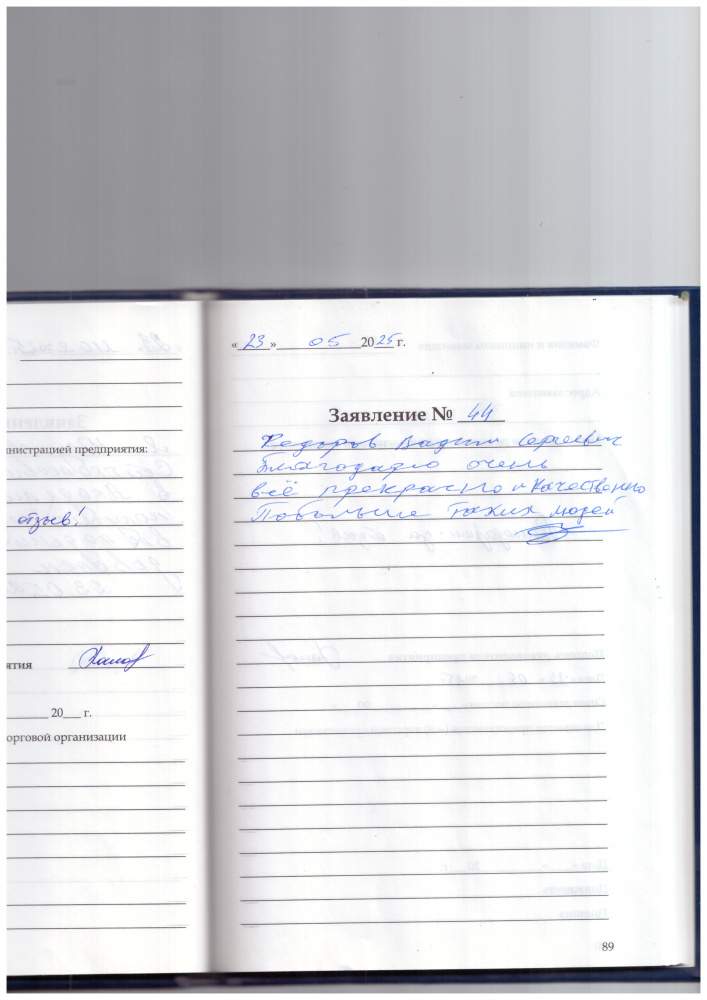 «23» 05 2025 г.
Заявление № 44
Федоров Вадим Сергеевич
Благодарю очень
всё прекрасно и качественно
Побольше таких людей
89
нистрацией предприятия:
отзыв!
ятия
20 г.
орговой организации